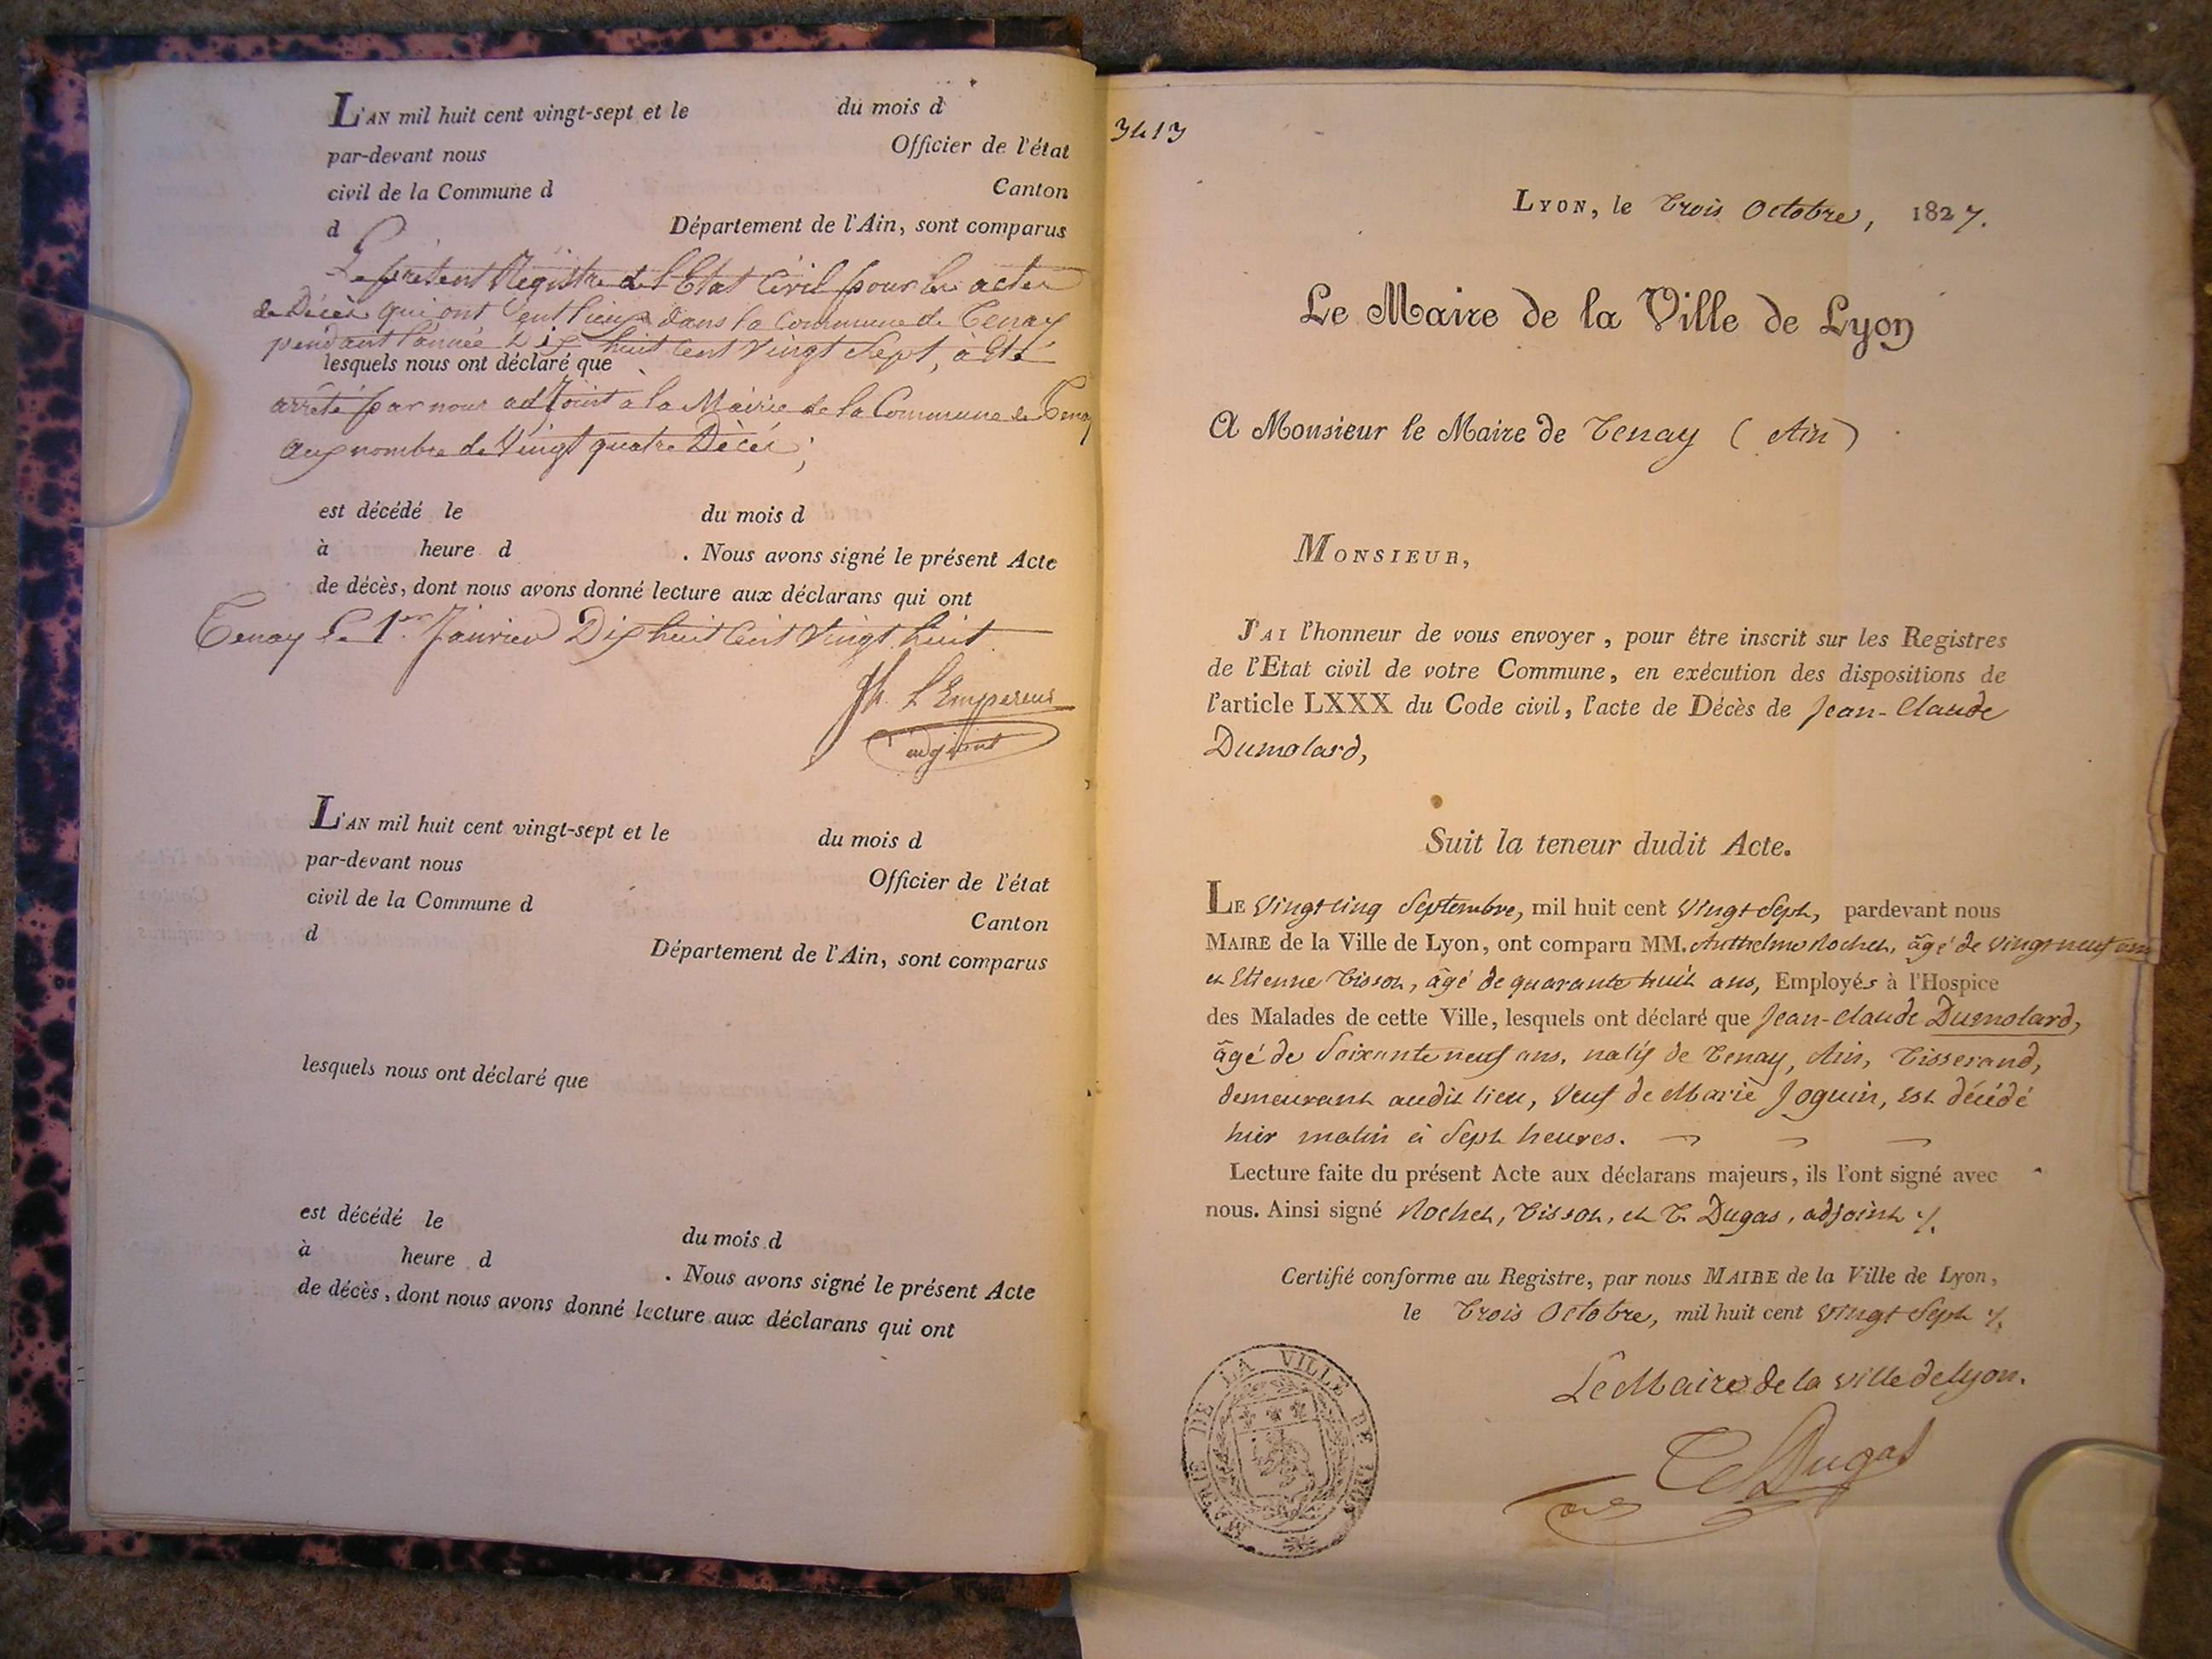 L'AN mil huit cent vingt-sept et le du mois d
par-devant nous Officier de l'état
civil de la Commune d Canton
d Département de l'Ain, sont comparus
Le présent Régistre de l'Etat Civil pour les actes
de Décès qui ont eut lieux dans la Commune de Tenay
pendant l'année Dix huit Cent Vingt Sept, à Eté
lesquels nous ont déclaré que
arrêté par nous adjoint à la Mairie de la Commune de Tenay
aux nombre de Vingt quatre Décès;
est décédé le du mois d
à heure d . Nous avons signé le présent Acte
de décès, dont nous avons donné lecture aux déclarans qui ont
Tenay le 1er Janvier Dix huit Cent Vingt huit
L'Empereur
adjoint
L'AN mil huit cent vingt-sept et le du mois d
par-devant nous Officier de l'état
civil de la Commune d Canton
d Département de l'Ain, sont comparus
lesquels nous ont déclaré que
est décédé le du mois d
à heure d . Nous avons signé le présent Acte
de décès, dont nous avons donné lecture aux déclarans qui ont
3413
LYON, le Trois Octobre, 1827.
Le Maire de la Ville de Lyon
A Monsieur le Maire de Tenay (Ain)
MONSIEUR,
J'AI l'honneur de vous envoyer, pour être inscrit sur les Registres
de l'Etat civil de votre Commune, en exécution des dispositions de
l'article LXXX du Code civil, l'acte de Décès de Jean-Claude
Dumolard,
Suit la teneur dudit Acte.
LE Vingt cinq Septembre, mil huit cent Vingt Sept, pardevant nous
MAIRE de la Ville de Lyon, ont comparu MM. Anthelme Rochet, âgé de vingt neuf ans
et Etienne Tissot, âgé de quarante huit ans, Employés à l'Hospice
des Malades de cette Ville, lesquels ont déclaré que Jean-Claude Dumolard,
âgé de Soixante neuf ans, natif de Tenay, Ain, Tisserand,
demeurant audit lieu, Veuf de Marie Joguin, est décédé
hier matin à Sept heures.
Lecture faite du présent Acte aux déclarans majeurs, ils l'ont signé avec
nous. Ainsi signé Rochet, Tissot, et T. Dugas, adjoint
Certifié conforme au Registre, par nous MAIRE de la Ville de Lyon,
le Trois Octobre, mil huit cent Vingt Sept
Le Maire de la ville de Lyon.
Dugas
MAIRIE DE LA VILLE DE LYON